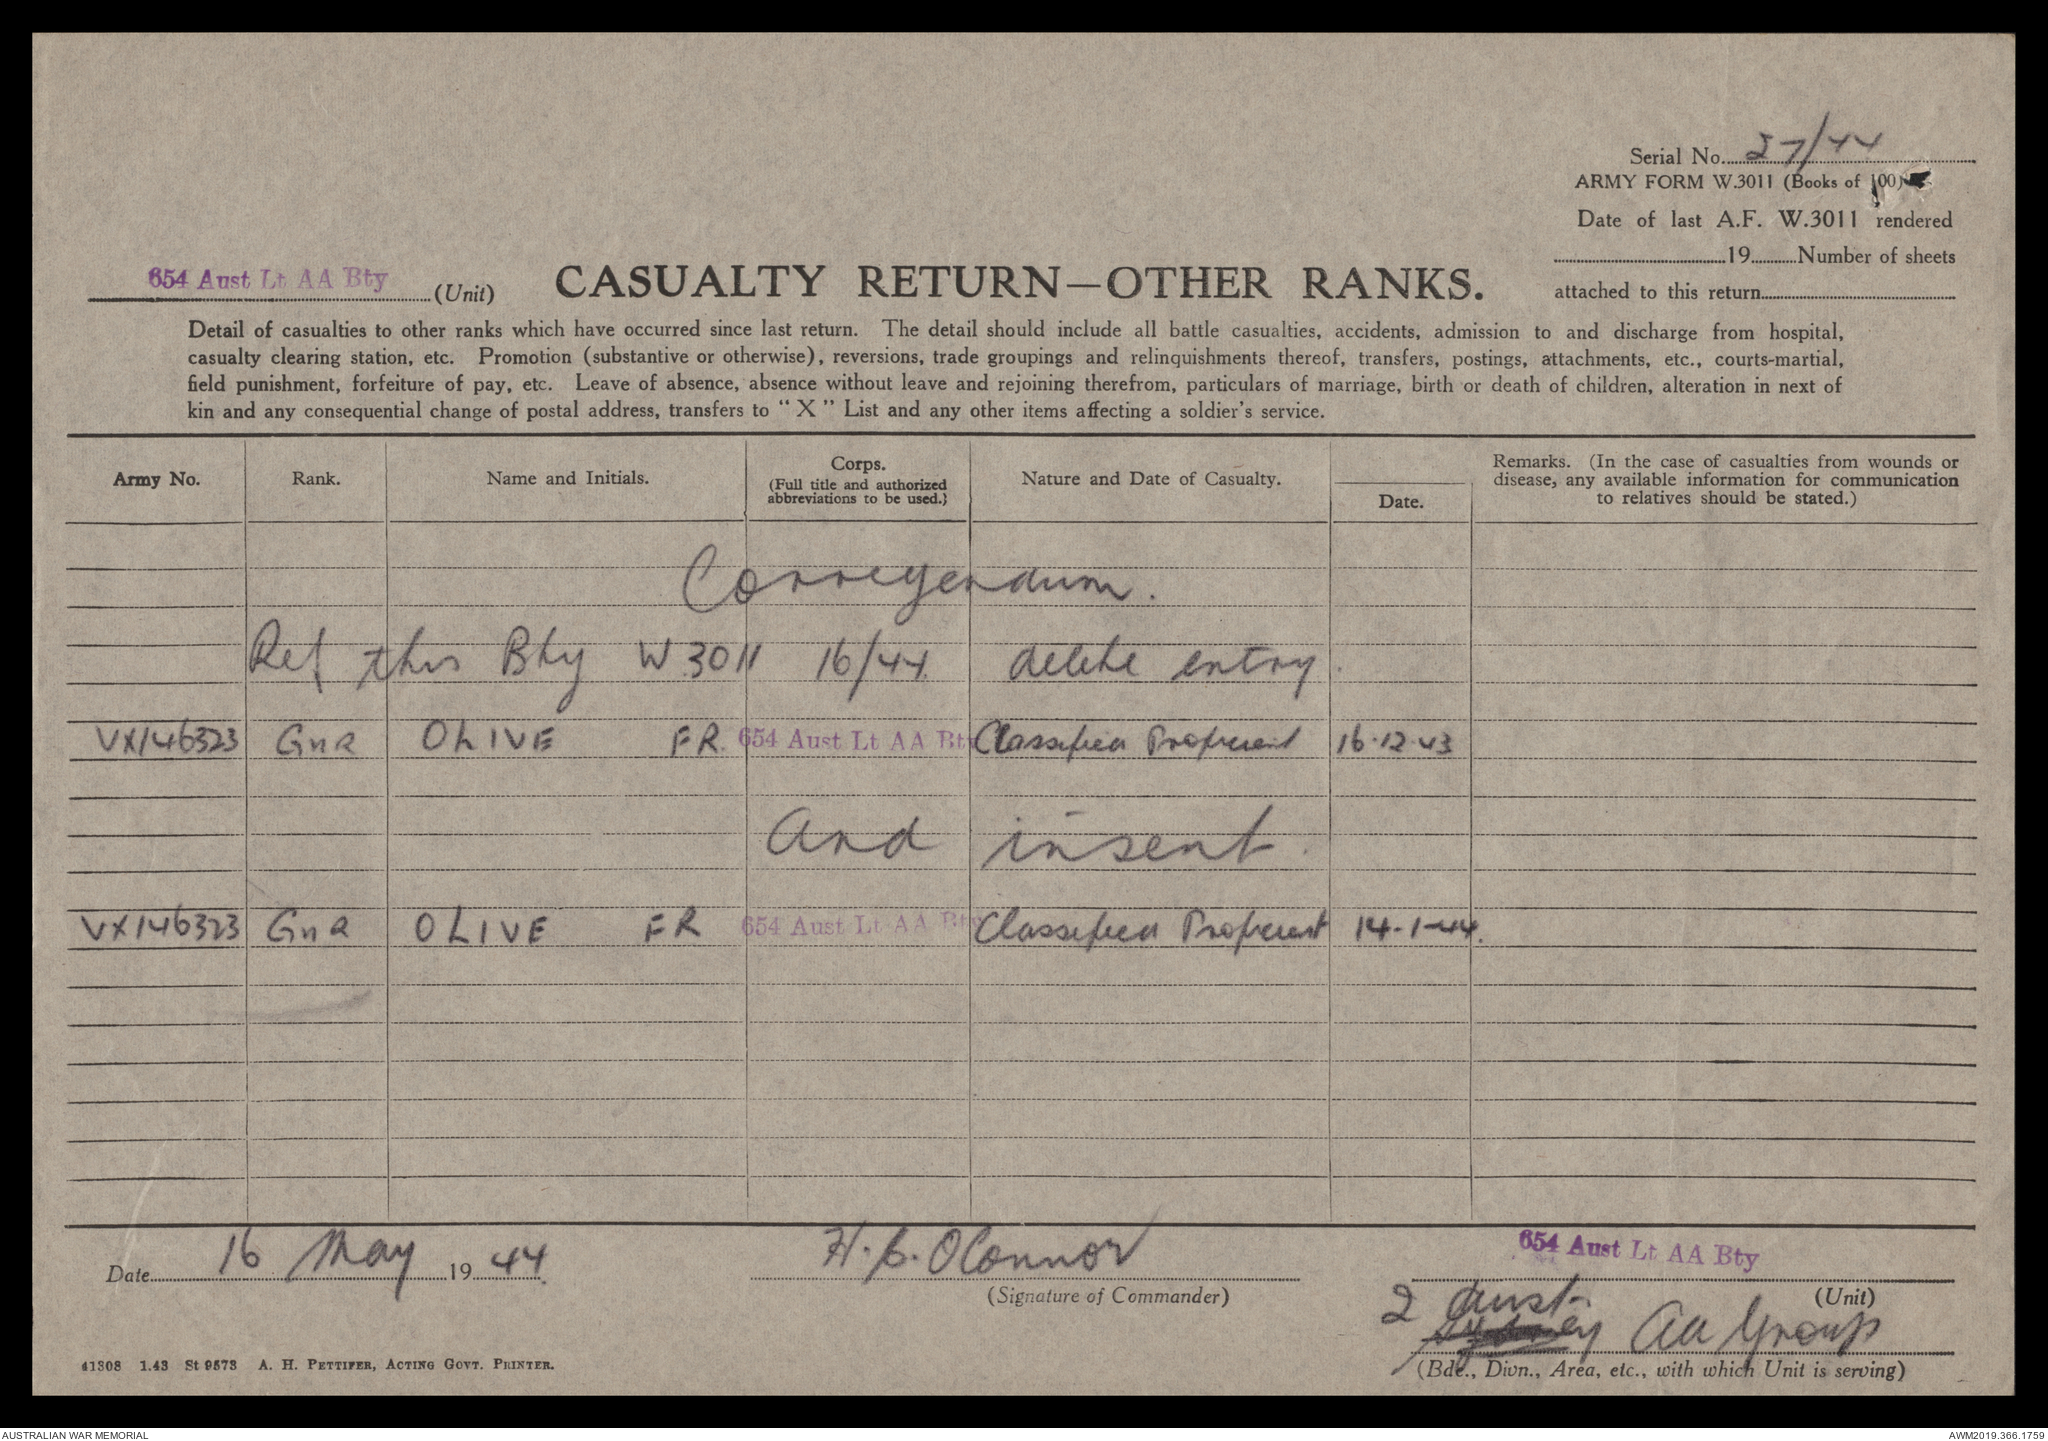 Serial No. 27/44
ARMY FORM W.3011 (Books of 100)
Date of last A.F. W.3011 rendered
19 Number of sheets
attached to this return
654 Aust Lt AA Bty (Unit)
CASUALTY RETURN—OTHER RANKS.
Detail of casualties to other ranks which have occurred since last return. The detail should include all battle casualties, accidents, admission to and discharge from hospital,
casualty clearing station, etc. Promotion (substantive or otherwise), reversions, trade groupings and relinquishments thereof, transfers, postings, attachments, etc., courts-martial,
field punishment, forfeiture of pay, etc. Leave of absence, absence without leave and rejoining therefrom, particulars of marriage, birth or death of children, alteration in next of
kin and any consequential change of postal address, transfers to “ X ” List and any other items affecting a soldier's service.
Army No.
Rank.
Name and Initials.
Corps.
(Full title and authorized
abbreviations to be used.)
Nature and Date of Casualty.
Date.
Remarks. (In the case of casualties from wounds or
disease, any available information for communication
to relatives should be stated.)
Corrigendum.
Ref this Bty W.3011 16/44 delete entry.
VX146323 Gnr OLIVE FR. 654 Aust Lt AA Bty Classified Proficient 16-12-43
And insert.
VX146323 Gnr OLIVE FR 654 Aust Lt AA Bty Classified Proficient 14-1-44.
Date 16 May 19 44.
H. C. OConnor
(Signature of Commander)
654 Aust Lt AA Bty
(Unit)
2 Aust
Sydney AA Group
(Bde., Divn., Area, etc., with which Unit is serving)
41308 1.43 St 9573 A. H. PETTIFER, ACTING GOVT. PRINTER.
AUSTRALIAN WAR MEMORIAL
AWM2019.366.1759